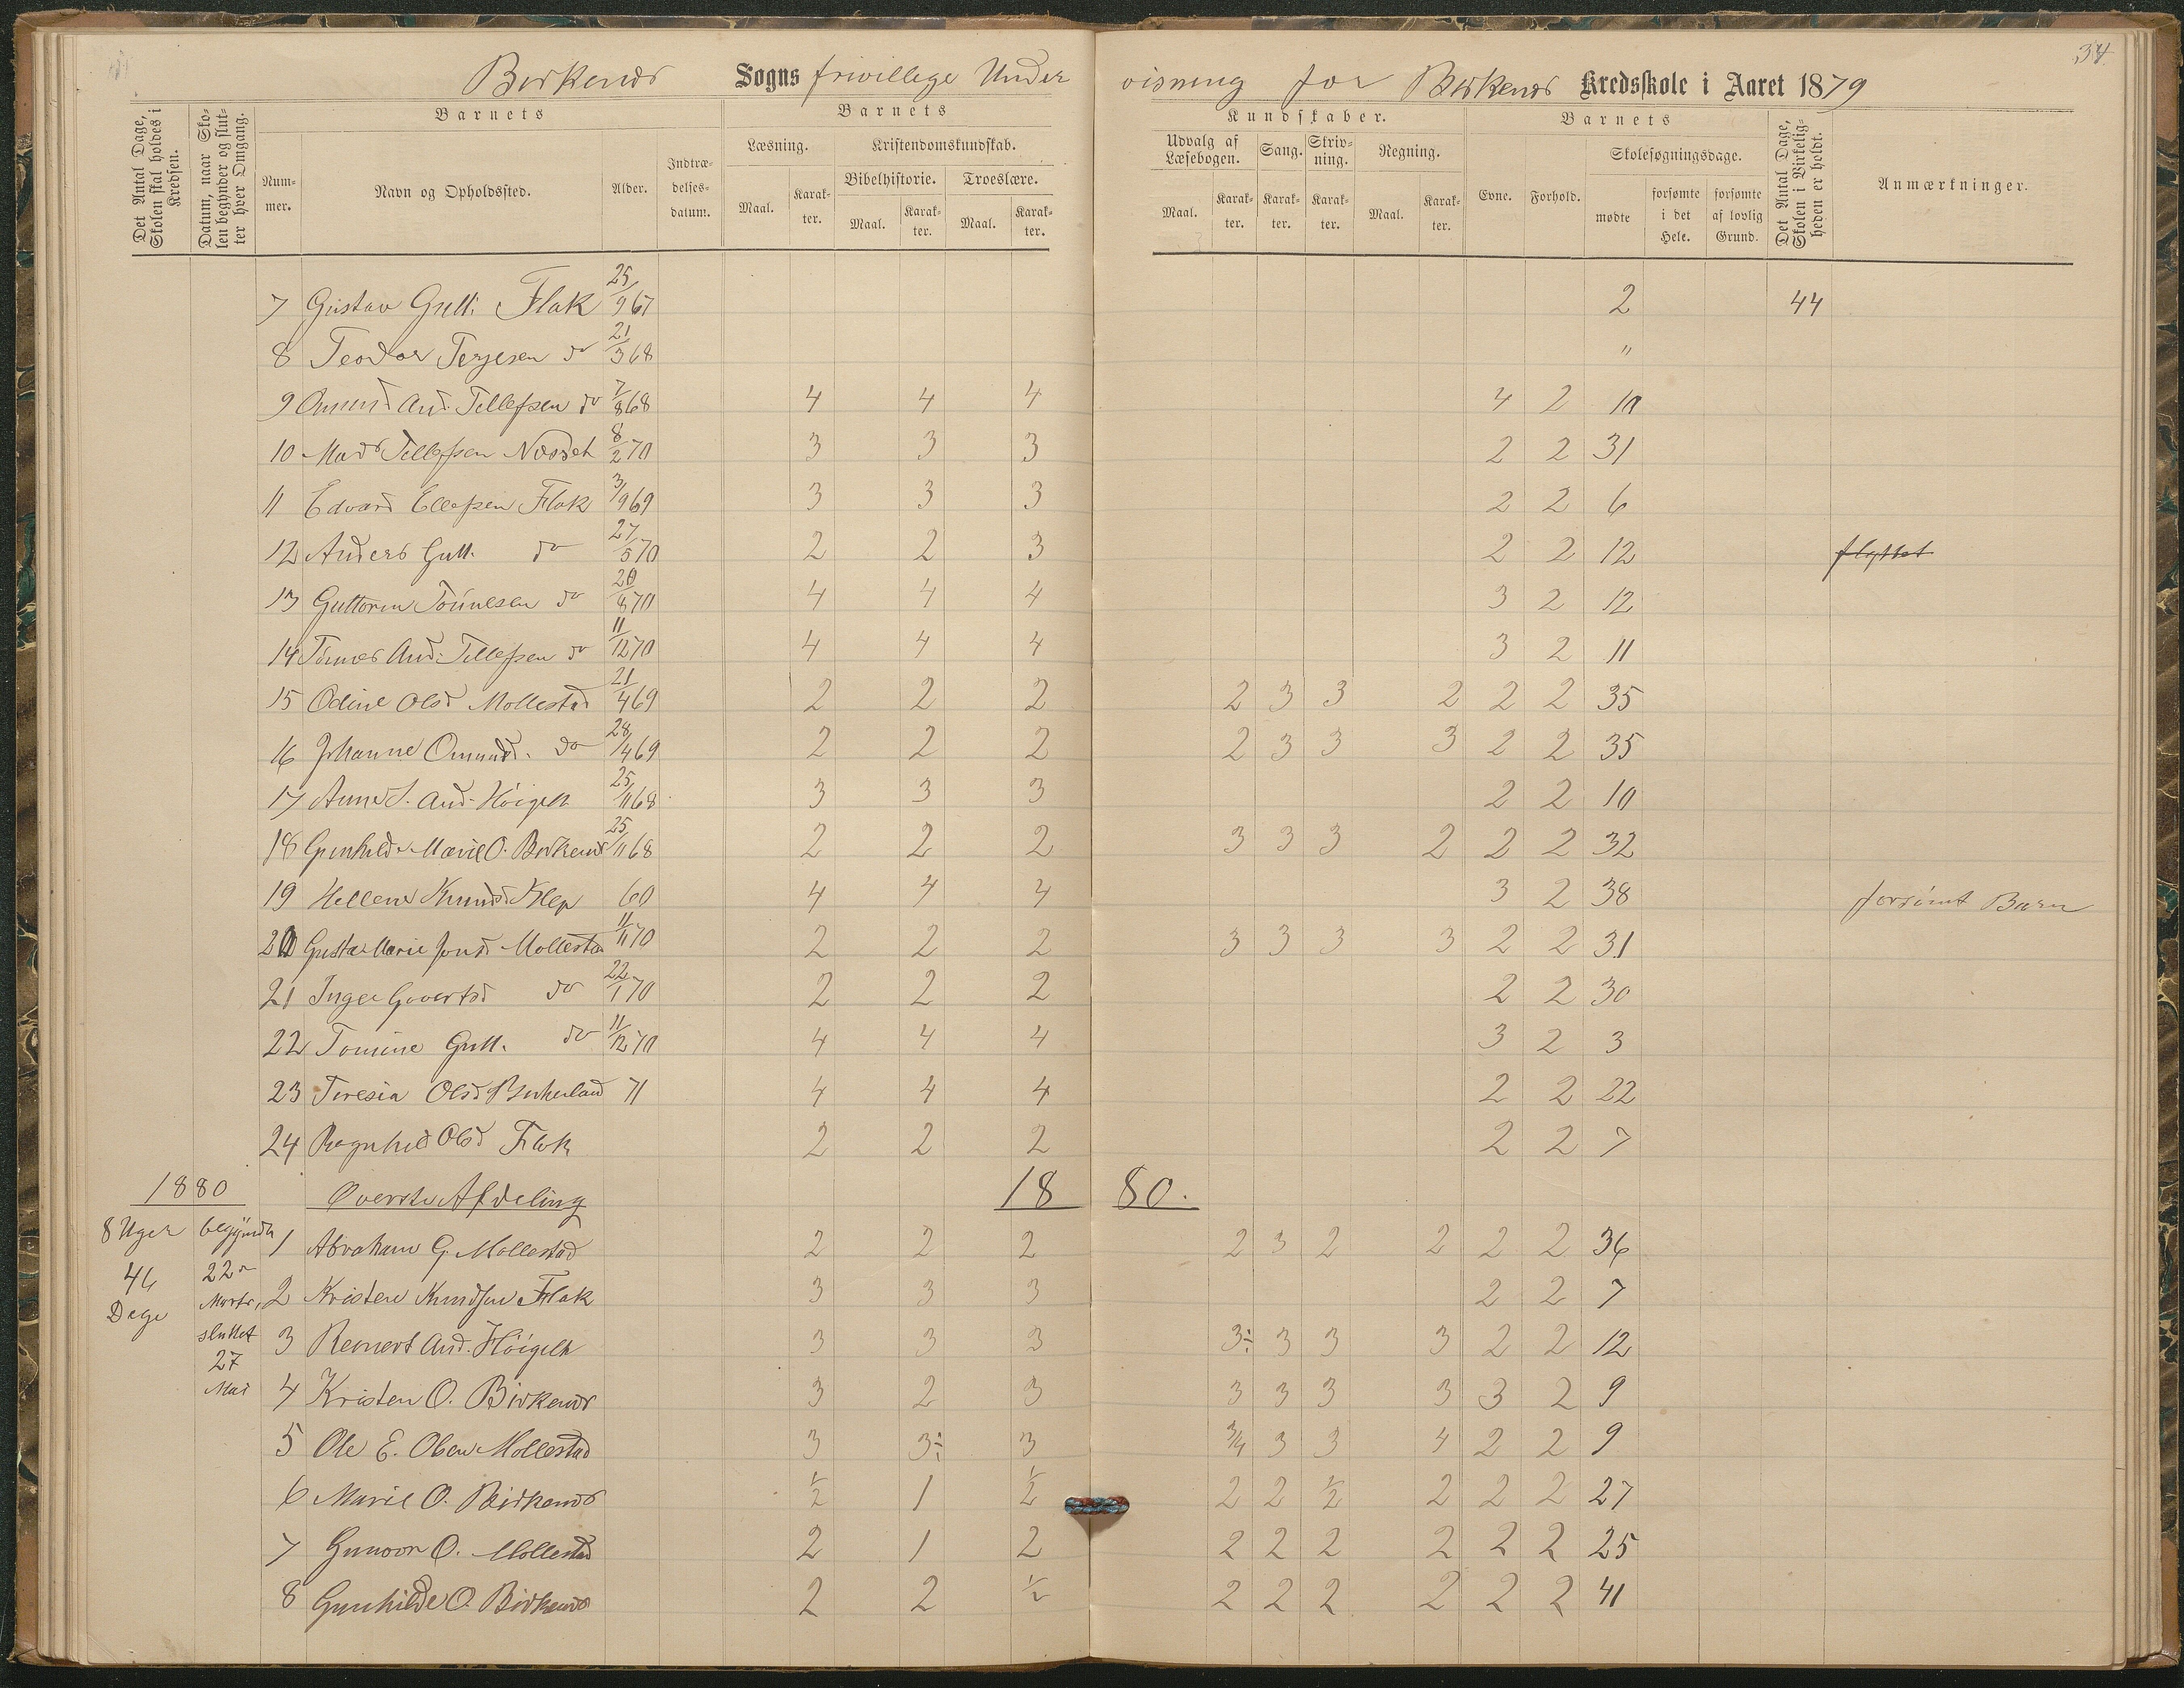 34
Birkenes Sogns frivillige Undervisning for Birkenes Kredsskole i Aaret 1879
Det Antal Dage, Skolen skal holdes i Kredsen.
Datum, naar Skolen begynder og slutter hver Omgang.
Barnets
Nummer.
Navn og Opholdssted.
Alder.
Indtrædelsesdatum.
Barnets
Læsning.
Maal.
Karakter.
Kristendomskundskab.
Bibelhistorie.
Maal.
Karakter.
Troeslære.
Maal.
Karakter.
Kundskaber.
Udvalg af Læsebogen.
Maal.
Karakter.
Sang.
Karakter.
Skrivning.
Karakter.
Regning.
Maal.
Karakter.
Barnets
Evne.
Forhold.
Skolesøgningsdage.
mødte
forsømte i det Hele.
forsømte af lovlig Grund.
Det Antal Dage, Skolen i Virkeligheden er holdt.
Anmærkninger.
7 Gustav Gutt: Flak 25/9 67 2 44
8 Teodor Terjesen do 21/3 68 "
9 Omund And. Tellefsen do 7/8 68 4 4 4 4 2 10
10 Mads Tellefsen Næset 8/2 70 3 3 3 2 2 31
11 Edvard Ellefsen Flak 3/9 69 3 3 3 2 2 6
12 Anders Gutt. do 27/5 70 2 2 3 2 2 12 flyttet
13 Guttorm Tönnesen do 20/8 70 4 4 4 3 2 12
14 Tönnes And. Tellefsen do 11/12 70 4 4 4 3 2 11
15 Odine Olsd Mollestad 21/4 69 2 2 2 2 3 3 2 2 2 35
16 Johanne Omunds. do 28/4 69 2 2 2 2 3 3 3 2 2 35
17 Anne S. And. Höigelt 25/11 68 3 3 3 2 2 10
18 Gunhild Marie O. Birkenes 25/11 68 2 2 2 3 3 3 2 2 2 32
19 Hellene Knudsd Klep 60 4 4 4 3 2 38 forsömt Barn
20 Gusta Marie Jonsd Mollestad 11/11 70 2 2 2 3 3 3 3 2 2 31
21 Inger Govertsd do 22/1 70 2 2 2 2 2 30
22 Tomine Gutt. do 11/12 70 4 4 4 3 2 3
23 Teresia Olsd Birkeland 71 4 4 4 2 2 22
24 Ragnhild Olsd Flak 2 2 2 2 2 7
1880 Överste Afdeling 1880.
8 Uger
46
Dage
begyndte
22de
Marts,
sluttet
27
Mai
1 Abraham G. Mollestad 2 2 2 2 3 2 2 2 2 36
2 Kristen Knudsen Flak 3 3 3 2 2 7
3 Reinert And. Höigelt 3 3 3 3÷ 3 3 3 2 2 12
4 Kristen O. Birkenes 3 2 3 3 3 3 3 3 2 9
5 Ole E. Olsen Mollestad 3 3÷ 3 3/4 3 3 4 2 2 9
6 Marie O. Birkenes 1/2 1 1/2 2 2 1/2 2 2 2 27
7 Gunvor O. Mollestad 2 1 2 2 2 2 2 2 2 25
8 Gunhilde O. Birkenes 2 2 1/2 2 2 2 2 2 2 41